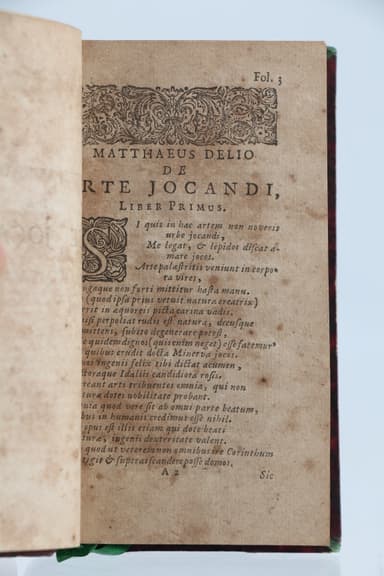 Fol. 3
MATTHAEUS DELIO
DE
RTE JOCANDI,
LIBER PRIMUS.
SI quis in hac artem non noverit
urbe jocandi,
Me legat, & lepidos discat a-
mare jocos.
Arte palæstritis veniunt in corpo-
ra vires,
gaque non furti mittitur hasta manu.
(quod ipsa prius vetuit natura creatrix)
erit in æquoreis picta carina vadis.
isi perpoliat rudis est natura, decusque
mittens, subito degenerare potest,
quidem dignos (quis enim neget) esse fatemur
quibus erudit docta Minerva jocos.
os ingenii felix tibi dictat acumen,
oraque Idaliis candidiora rosis.
eant arti tribuentes omnia, qui non
uræ dotes nobilitate probant.
uia quod vere sit ab omni parte beatum,
bus in humanis credimus esse nihil.
opus est illis etiam qui dote beati
turæ, ingenii dexteritate valent.
quod ut veterem non omnibus ire Corinthum
tigit & supera scandere posse domos.
A 2
Sic